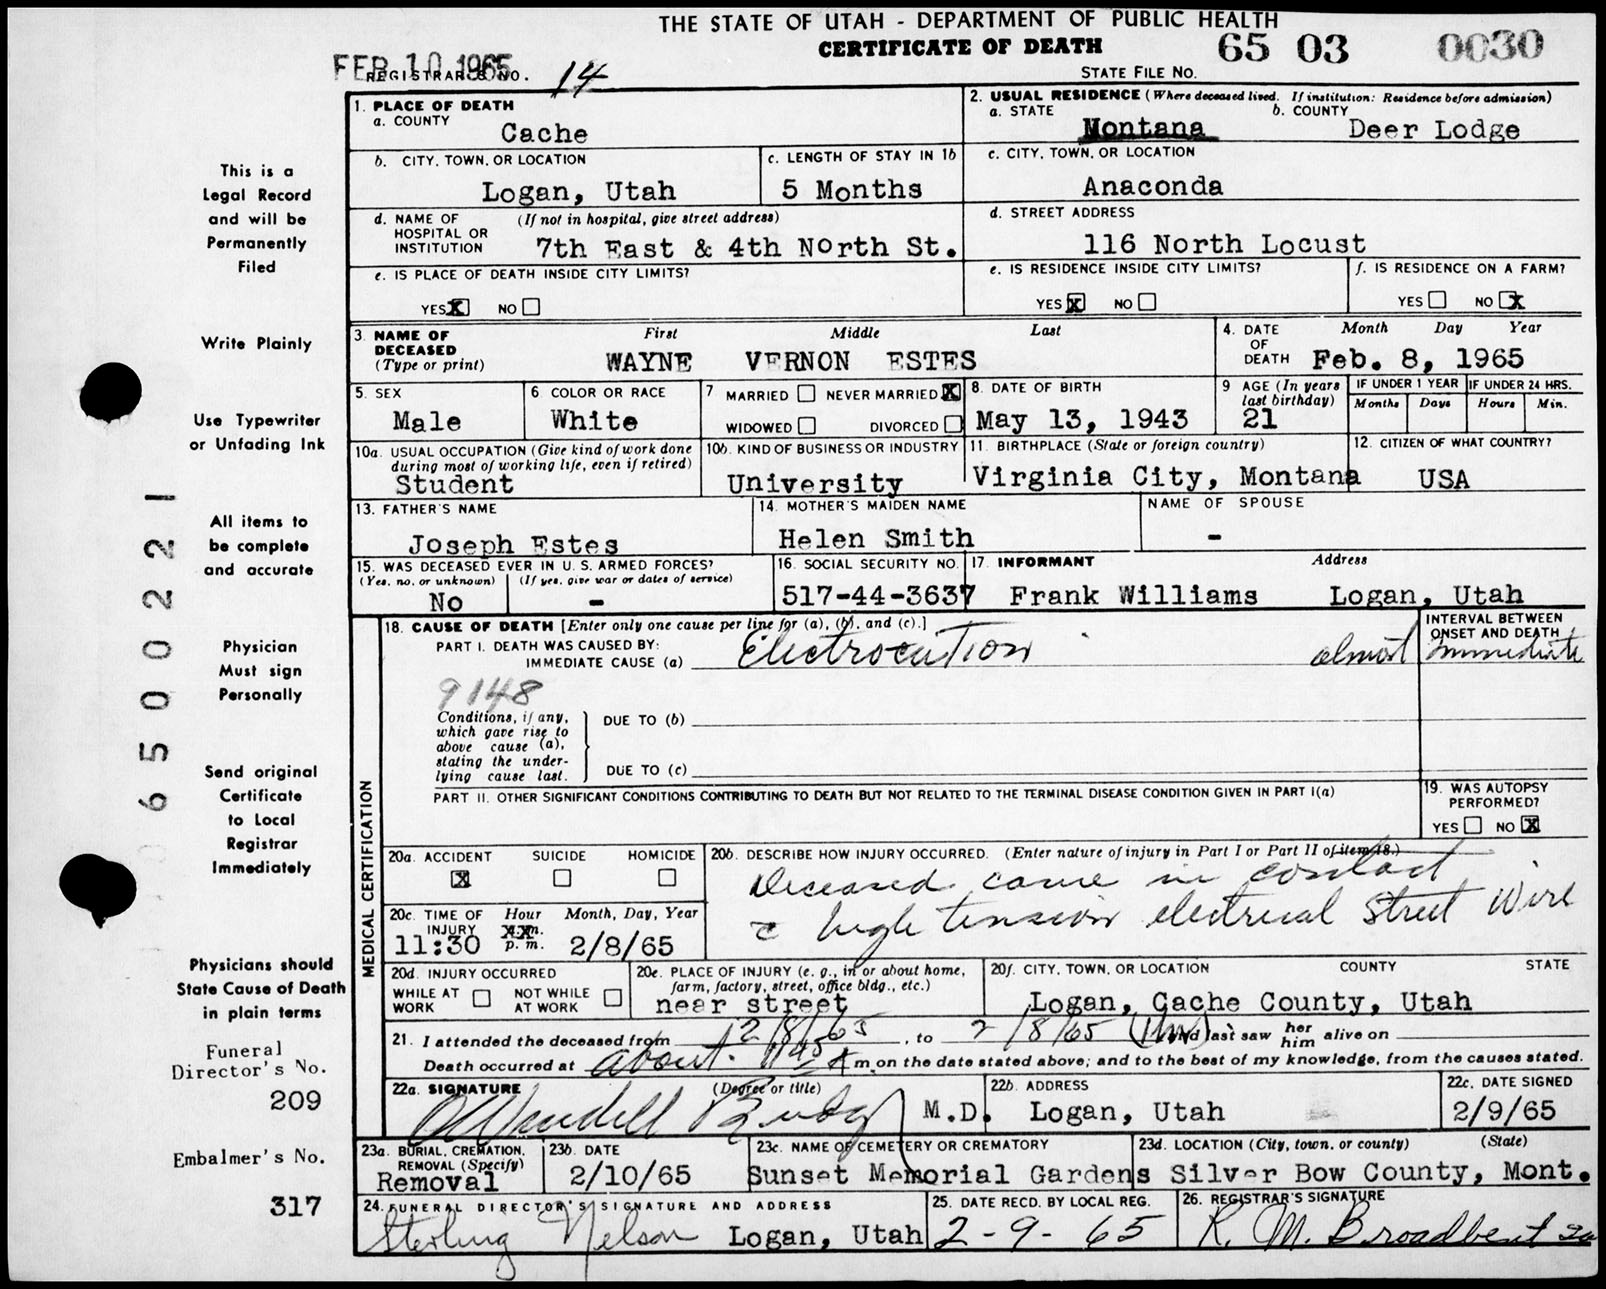 THE STATE OF UTAH - DEPARTMENT OF PUBLIC HEALTH
CERTIFICATE OF DEATH
65 03 0030
FEB 10 1965
REGISTRAR'S NO. 14
STATE FILE NO.
1. PLACE OF DEATH
a. COUNTY
Cache
2. USUAL RESIDENCE (Where deceased lived. If institution: Residence before admission)
a. STATE
Montana
b. COUNTY
Deer Lodge
b. CITY, TOWN, OR LOCATION
Logan, Utah
c. LENGTH OF STAY IN 1b
5 Months
c. CITY, TOWN, OR LOCATION
Anaconda
d. NAME OF HOSPITAL OR INSTITUTION
(If not in hospital, give street address)
7th East & 4th North St.
d. STREET ADDRESS
116 North Locust
e. IS PLACE OF DEATH INSIDE CITY LIMITS?
YES X NO
e. IS RESIDENCE INSIDE CITY LIMITS?
YES X NO
f. IS RESIDENCE ON A FARM?
YES NO X
3. NAME OF DECEASED
(Type or print)
First Middle Last
WAYNE VERNON ESTES
4. DATE OF DEATH
Month Day Year
Feb. 8, 1965
5. SEX
Male
6 COLOR OR RACE
White
7 MARRIED NEVER MARRIED X
WIDOWED DIVORCED
8. DATE OF BIRTH
May 13, 1943
9 AGE (In years last birthday)
21
IF UNDER 1 YEAR
Months Days
IF UNDER 24 HRS.
Hours Min.
10a. USUAL OCCUPATION (Give kind of work done during most of working life, even if retired)
Student
10b. KIND OF BUSINESS OR INDUSTRY
University
11. BIRTHPLACE (State or foreign country)
Virginia City, Montana
12. CITIZEN OF WHAT COUNTRY?
USA
13. FATHER'S NAME
Joseph Estes
14. MOTHER'S MAIDEN NAME
Helen Smith
NAME OF SPOUSE
-
15. WAS DECEASED EVER IN U.S. ARMED FORCES?
(Yes, no, or unknown) (If yes, give war or dates of service)
No -
16. SOCIAL SECURITY NO.
517-44-3637
17. INFORMANT Address
Frank Williams Logan, Utah
MEDICAL CERTIFICATION
18. CAUSE OF DEATH [Enter only one cause per line for (a), (b), and (c).]
PART I. DEATH WAS CAUSED BY:
IMMEDIATE CAUSE (a) Electrocution
INTERVAL BETWEEN ONSET AND DEATH
almost immediate
9148
Conditions, if any, which gave rise to above cause (a), stating the underlying cause last.
DUE TO (b)
DUE TO (c)
PART II. OTHER SIGNIFICANT CONDITIONS CONTRIBUTING TO DEATH BUT NOT RELATED TO THE TERMINAL DISEASE CONDITION GIVEN IN PART I(a)
19. WAS AUTOPSY PERFORMED?
YES NO X
20a. ACCIDENT SUICIDE HOMICIDE
X
20b. DESCRIBE HOW INJURY OCCURRED. (Enter nature of injury in Part I or Part II of item 18.)
Deceased came in contact
c high tension electrical street wire
20c. TIME OF INJURY
Hour Month, Day, Year
11:30 a.m. p.m. 2/8/65
20d. INJURY OCCURRED
WHILE AT WORK NOT WHILE AT WORK
20e. PLACE OF INJURY (e. g., in or about home, farm, factory, street, office bldg., etc.)
near street
20f. CITY, TOWN, OR LOCATION COUNTY STATE
Logan, Cache County, Utah
21. I attended the deceased from 2/8/65, to 2/8/65 and last saw her him alive on
Death occurred at about 1145 m. on the date stated above; and to the best of my knowledge, from the causes stated.
22a. SIGNATURE (Degree or title)
M.D.
22b. ADDRESS
Logan, Utah
22c. DATE SIGNED
2/9/65
23a. BURIAL, CREMATION, REMOVAL (Specify)
Removal
23b. DATE
2/10/65
23c. NAME OF CEMETERY OR CREMATORY
Sunset Memorial Gardens
23d. LOCATION (City, town, or county) (State)
Silver Bow County, Mont.
24. FUNERAL DIRECTOR'S SIGNATURE AND ADDRESS
Sterling Nelson Logan, Utah
25. DATE RECD. BY LOCAL REG.
2-9-65
26. REGISTRAR'S SIGNATURE
R. M. Broadbent
This is a
Legal Record
and will be
Permanently
Filed
Write Plainly
Use Typewriter
or Unfading Ink
All items to
be complete
and accurate
Physician
Must sign
Personally
Send original
Certificate
to Local
Registrar
Immediately
Physicians should
State Cause of Death
in plain terms
Funeral
Director's No.
209
Embalmer's No.
317
06500221